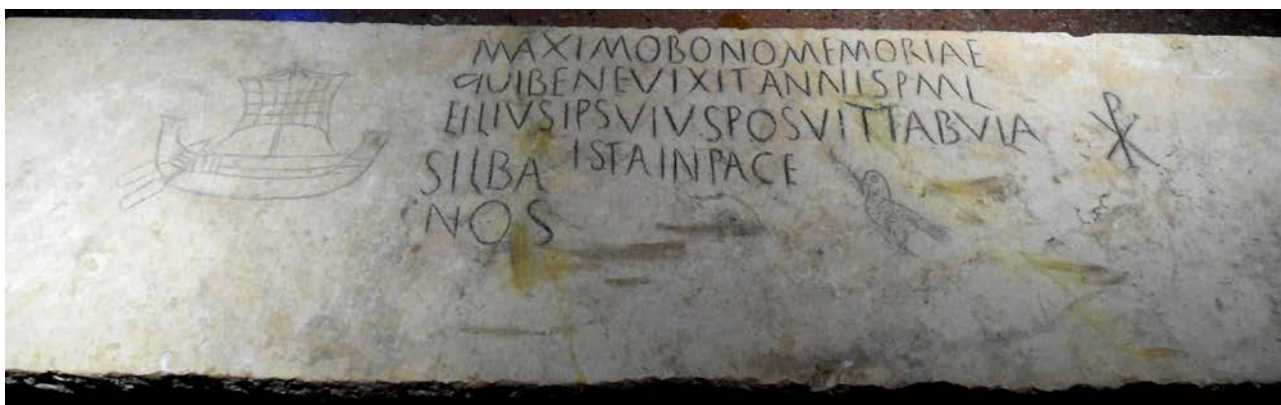 MAXIMOBONOMEMORIAE
QUIBENEVIXITANNISPML
FILIVSIPSVIVSPOSVITTABVLA
ISTAINPACE
SILBA
NOS